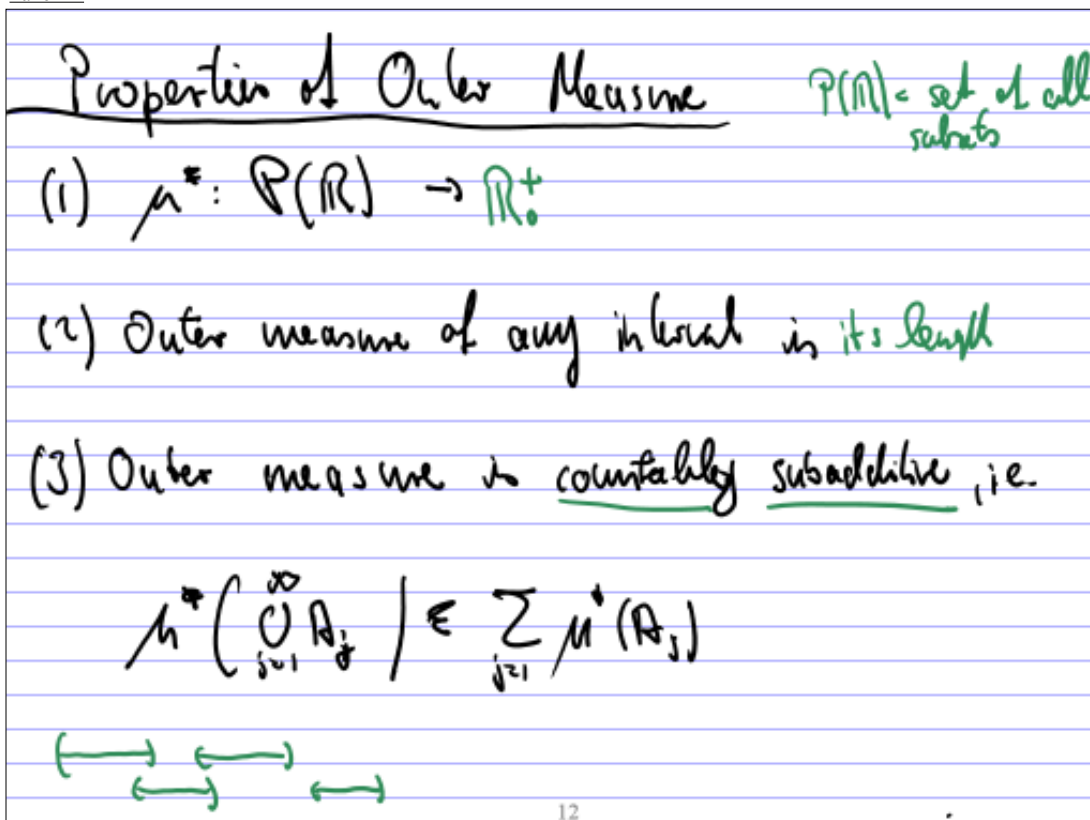 Properties of Outer Measure
P(ℝ) = set of all
subsets
(1) μ*: P(ℝ) → ℝ₀⁺
(2) Outer measure of any interval is its length
(3) Outer measure is countably subadditive, i.e.
μ*(⋃_{j=1}^{∞} A_j) ≤ ∑_{j=1} μ*(A_j)
12